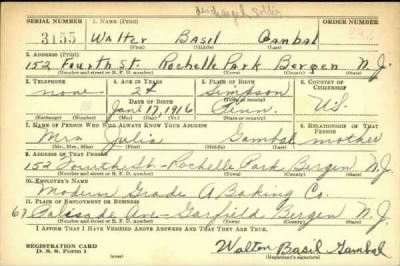 Discharged Soldier
SERIAL NUMBER 1. NAME (Print) ORDER NUMBER
3155 Walter Basil Gambal
(First) (Middle) (Last)
2. ADDRESS (Print)
152 Fourth St. Rochelle Park Bergen N.J.
(Number and street or R. F. D. number) (Town) (County) (State)
3. TELEPHONE 4. AGE IN YEARS 5. PLACE OF BIRTH 6. COUNTRY OF CITIZENSHIP
none 24 Simpson
DATE OF BIRTH (Town or county)
Jan. 17, 1916 Penn. U.S.
(Exchange) (Number) (Mo.) (Day) (Yr.) (State or country)
7. NAME OF PERSON WHO WILL ALWAYS KNOW YOUR ADDRESS 8. RELATIONSHIP OF THAT PERSON
Mrs Julia Gambal mother
(Mr., Mrs., Miss) (First) (Middle) (Last)
9. ADDRESS OF THAT PERSON
152 Fourth St. - Rochelle Park Bergen N.J.
(Number and street or R. F. D. number) (Town) (County) (State)
10. EMPLOYER'S NAME
Modern Grade A Baking Co.
11. PLACE OF EMPLOYMENT OR BUSINESS
67 Palisade Ave - Garfield Bergen N.J.
(Number and street or R. F. D. number) (Town) (County) (State)
I AFFIRM THAT I HAVE VERIFIED ABOVE ANSWERS AND THAT THEY ARE TRUE.
REGISTRATION CARD
D. S. S. Form 1
Walter Basil Gambal
(Registrant's signature)